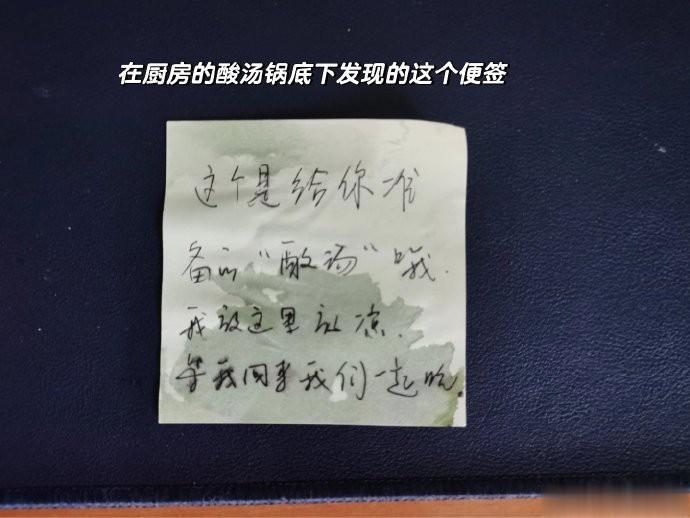 在厨房的酸汤锅底下发现的这个便签
这个是给你准
备的“酸汤”哦.
我放这里放凉.
等我回来我们一起吃.